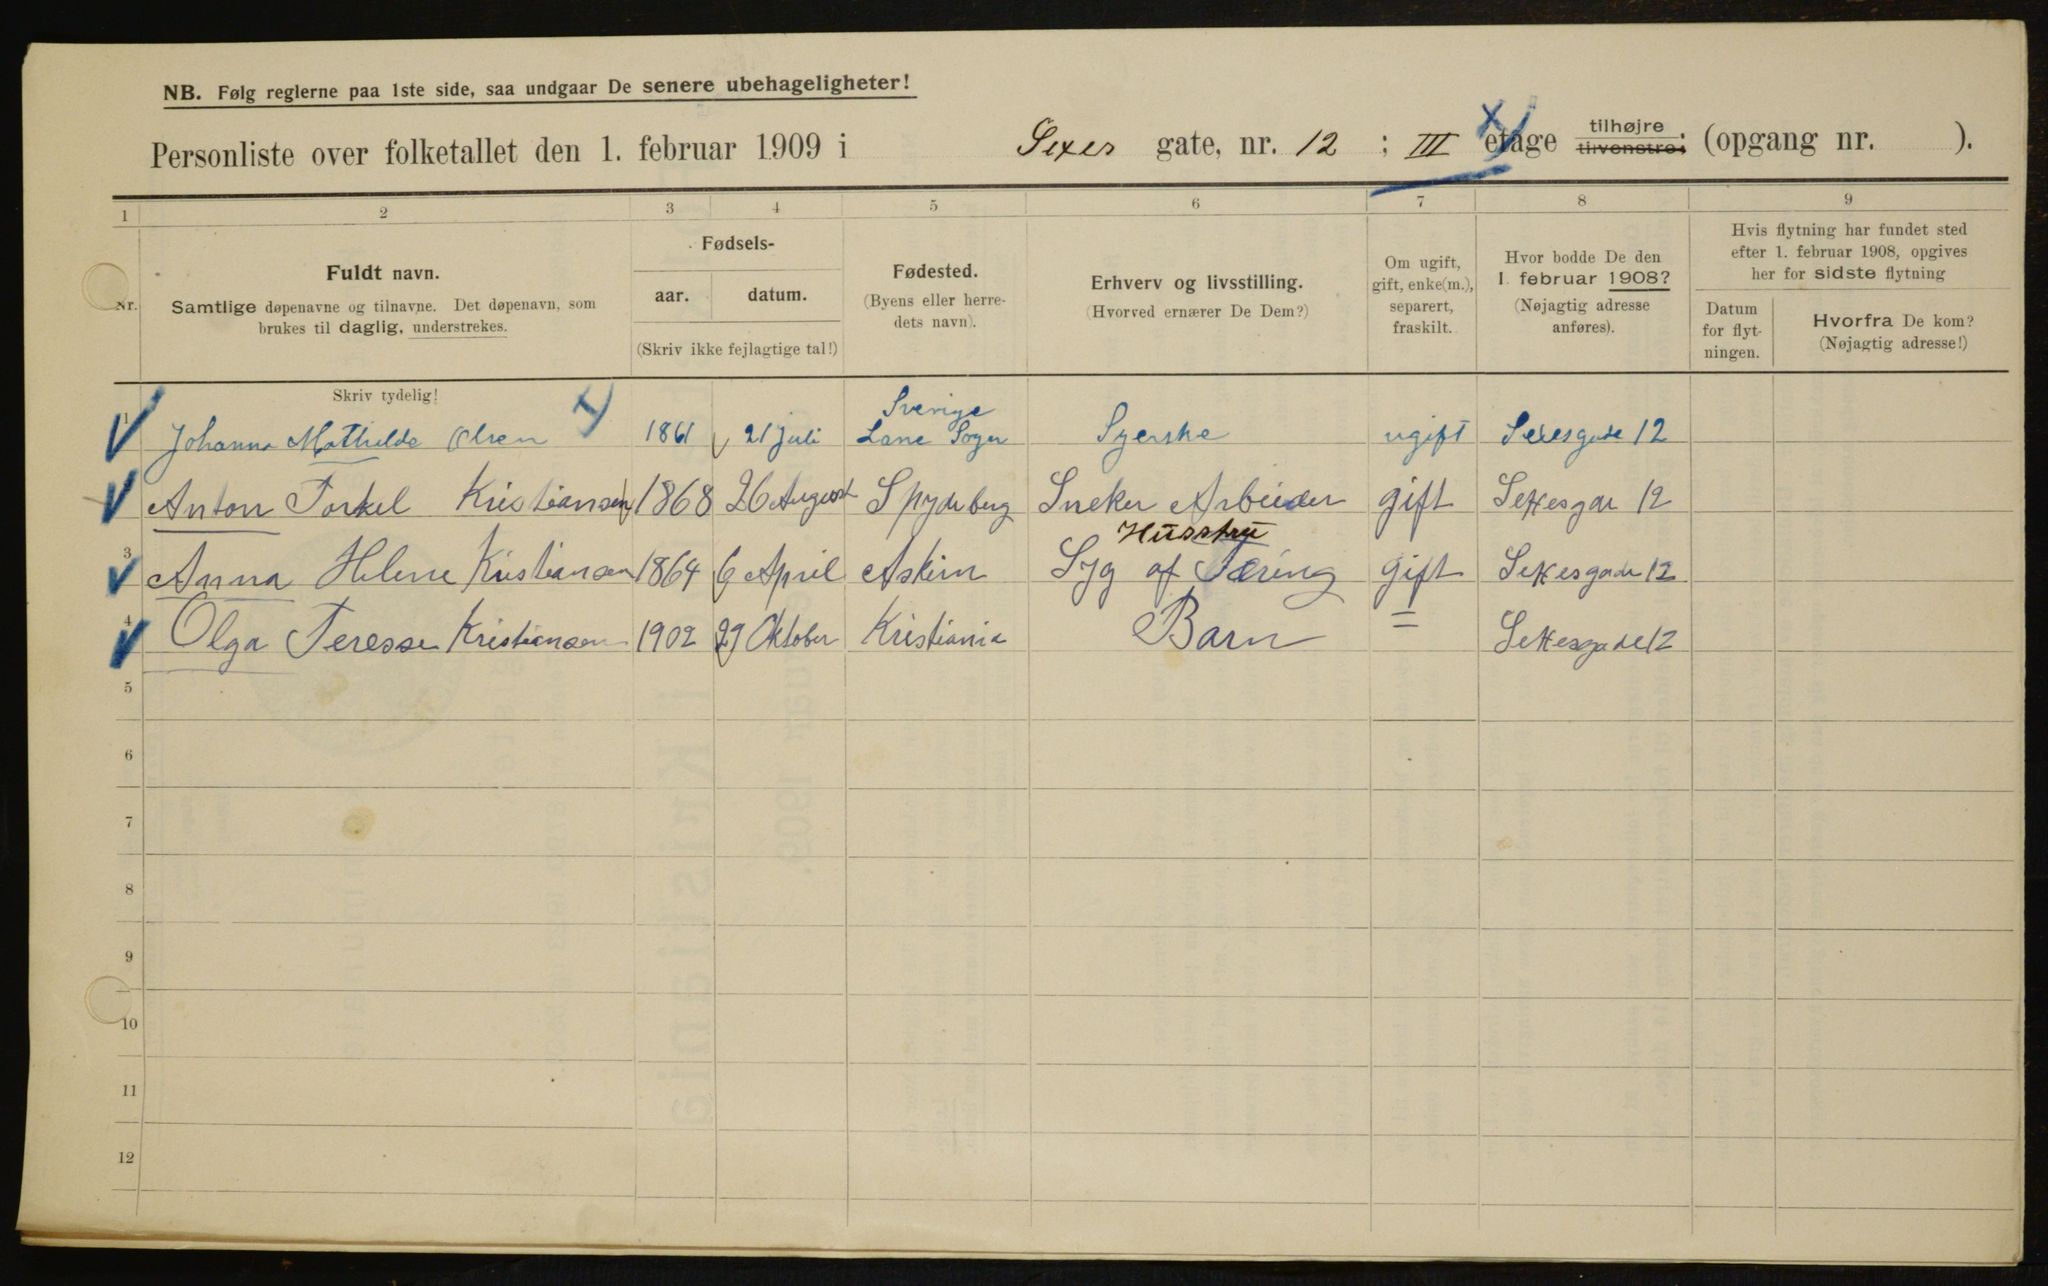 NB. Følg reglerne paa 1ste side, saa undgaar De senere ubehageligheter!
Personliste over folketallet den 1. februar 1909 i Sexes gate, nr. 12 ; III etage tilhøjre tilvenstre; (opgang nr. ).
1 2 3 4 5 6 7 8 9
Nr.
Fuldt navn.
Samtlige døpenavne og tilnavne. Det døpenavn, som
brukes til daglig, understrekes.
Fødsels-
aar. datum.
(Skriv ikke fejlagtige tal!)
Fødested.
(Byens eller herre-
dets navn).
Erhverv og livsstilling.
(Hvorved ernærer De Dem?)
Om ugift,
gift, enke(m.),
separert,
fraskilt.
Hvor bodde De den
1. februar 1908?
(Nøjagtig adresse
anføres).
Hvis flytning har fundet sted
efter 1. februar 1908, opgives
her for sidste flytning
Datum
for flyt-
ningen.
Hvorfra De kom?
(Nøjagtig adresse!)
Skriv tydelig!
1 Johanna Mathilde Olsen 1861 21 juli Sverige Lane Sogen Syerske ugift Sexesgade 12
Anton Torkel Kristiansen 1868 26 August Spydeberg Sneker Arbeider gift Sexesgde 12
Husstru
3 Anna Helene Kristiansen 1864 6 April Askim Syg af Tæring gift Sexesgade 12
4 Olga Teresse Kristiansen 1902 29 Oktober Kristiania Barn = Sexesgade 12
5
6
7
8
9
10
11
12